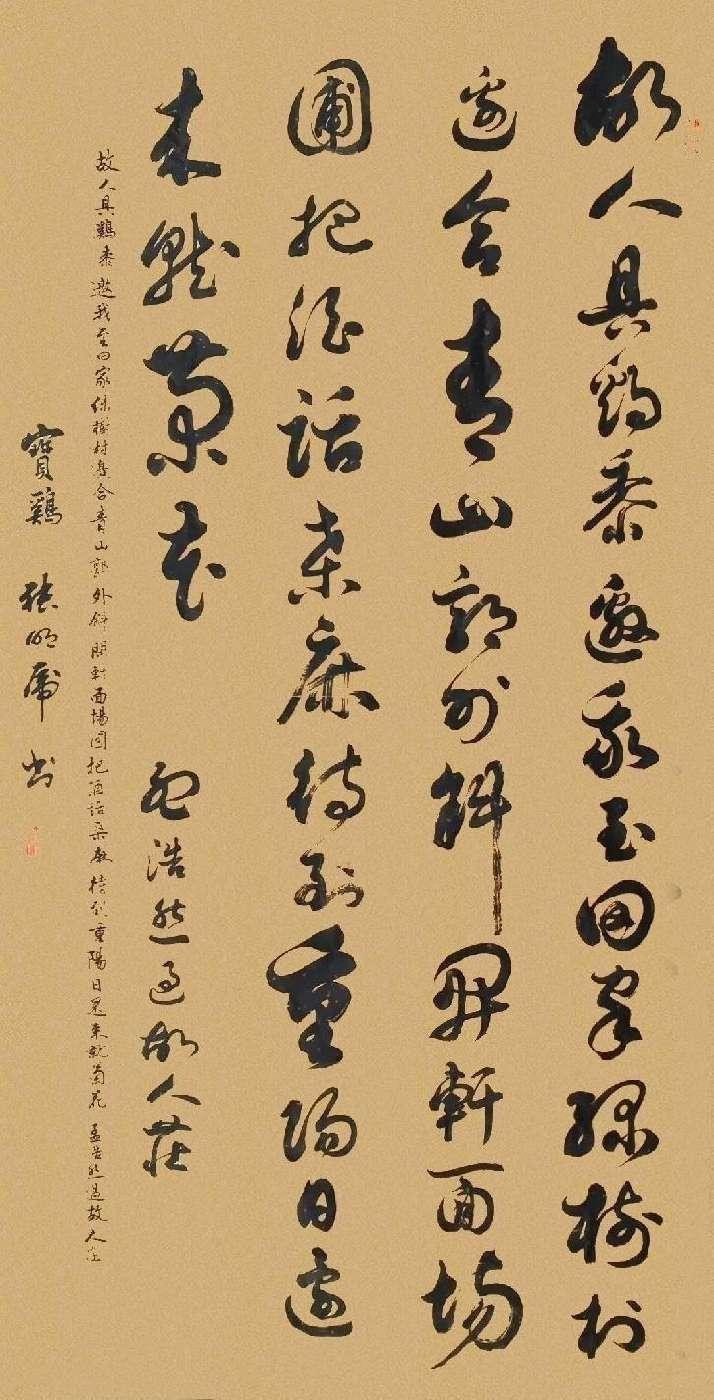 故人具鷄黍邀我至田家綠樹村
邊合青山郭外斜開軒面場
圃把酒話桑麻待到重陽日還
来就菊花 孟浩然過故人莊
故人具鷄黍邀我至田家綠樹村邊合青山郭外斜開軒面場圃把酒話桑麻待到重陽日還来就菊花 孟浩然過故人庄
寶鷄 明 書